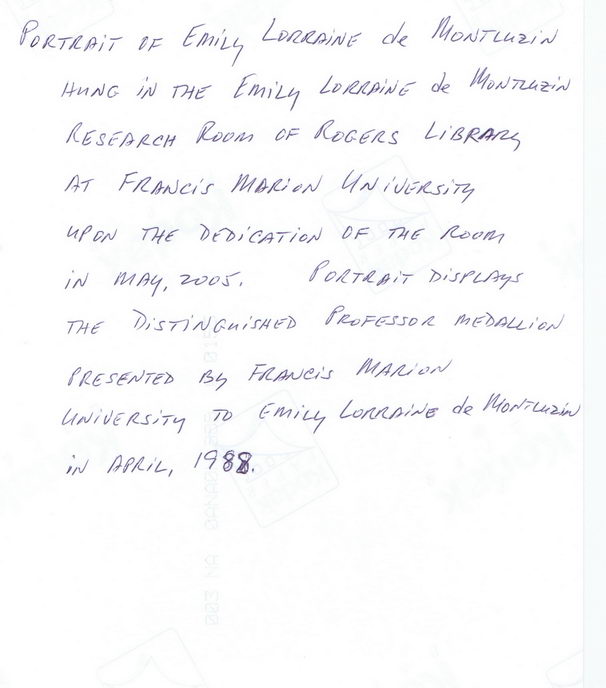 PORTRAIT OF EMILY LORRAINE de MONTLUZIN
HUNG IN THE EMILY LORRAINE de MONTLUZIN
RESEARCH ROOM OF ROGERS LIBRARY
AT FRANCIS MARION UNIVERSITY
UPON THE DEDICATION OF THE ROOM
IN MAY, 2005. PORTRAIT DISPLAYS
THE DISTINGUISHED PROFESSOR MEDALLION
PRESENTED BY FRANCIS MARION
UNIVERSITY TO EMILY LORRAINE de MONTLUZIN
IN APRIL, 1988.